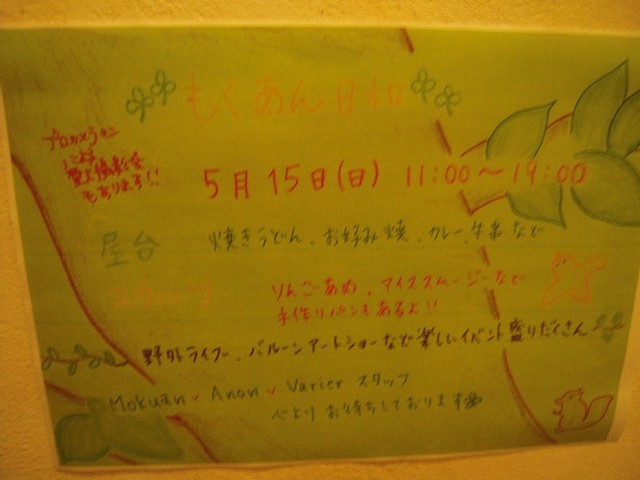 もくあん日和
プロカメラマン
による
撮影会
もあります!!
5月15日(日) 11:00〜19:00
屋台
焼きうどん、お好み焼、カレー、牛串など
スウィーツ
りんごあめ、アイススムージーなど
手作りパンもあるよ!!
野外ライブ、バルーンアートショーなど楽しいイベント盛りだくさん
Mokuan ♥ Anon ♥ Varier スタッフ
心よりお待ちしております